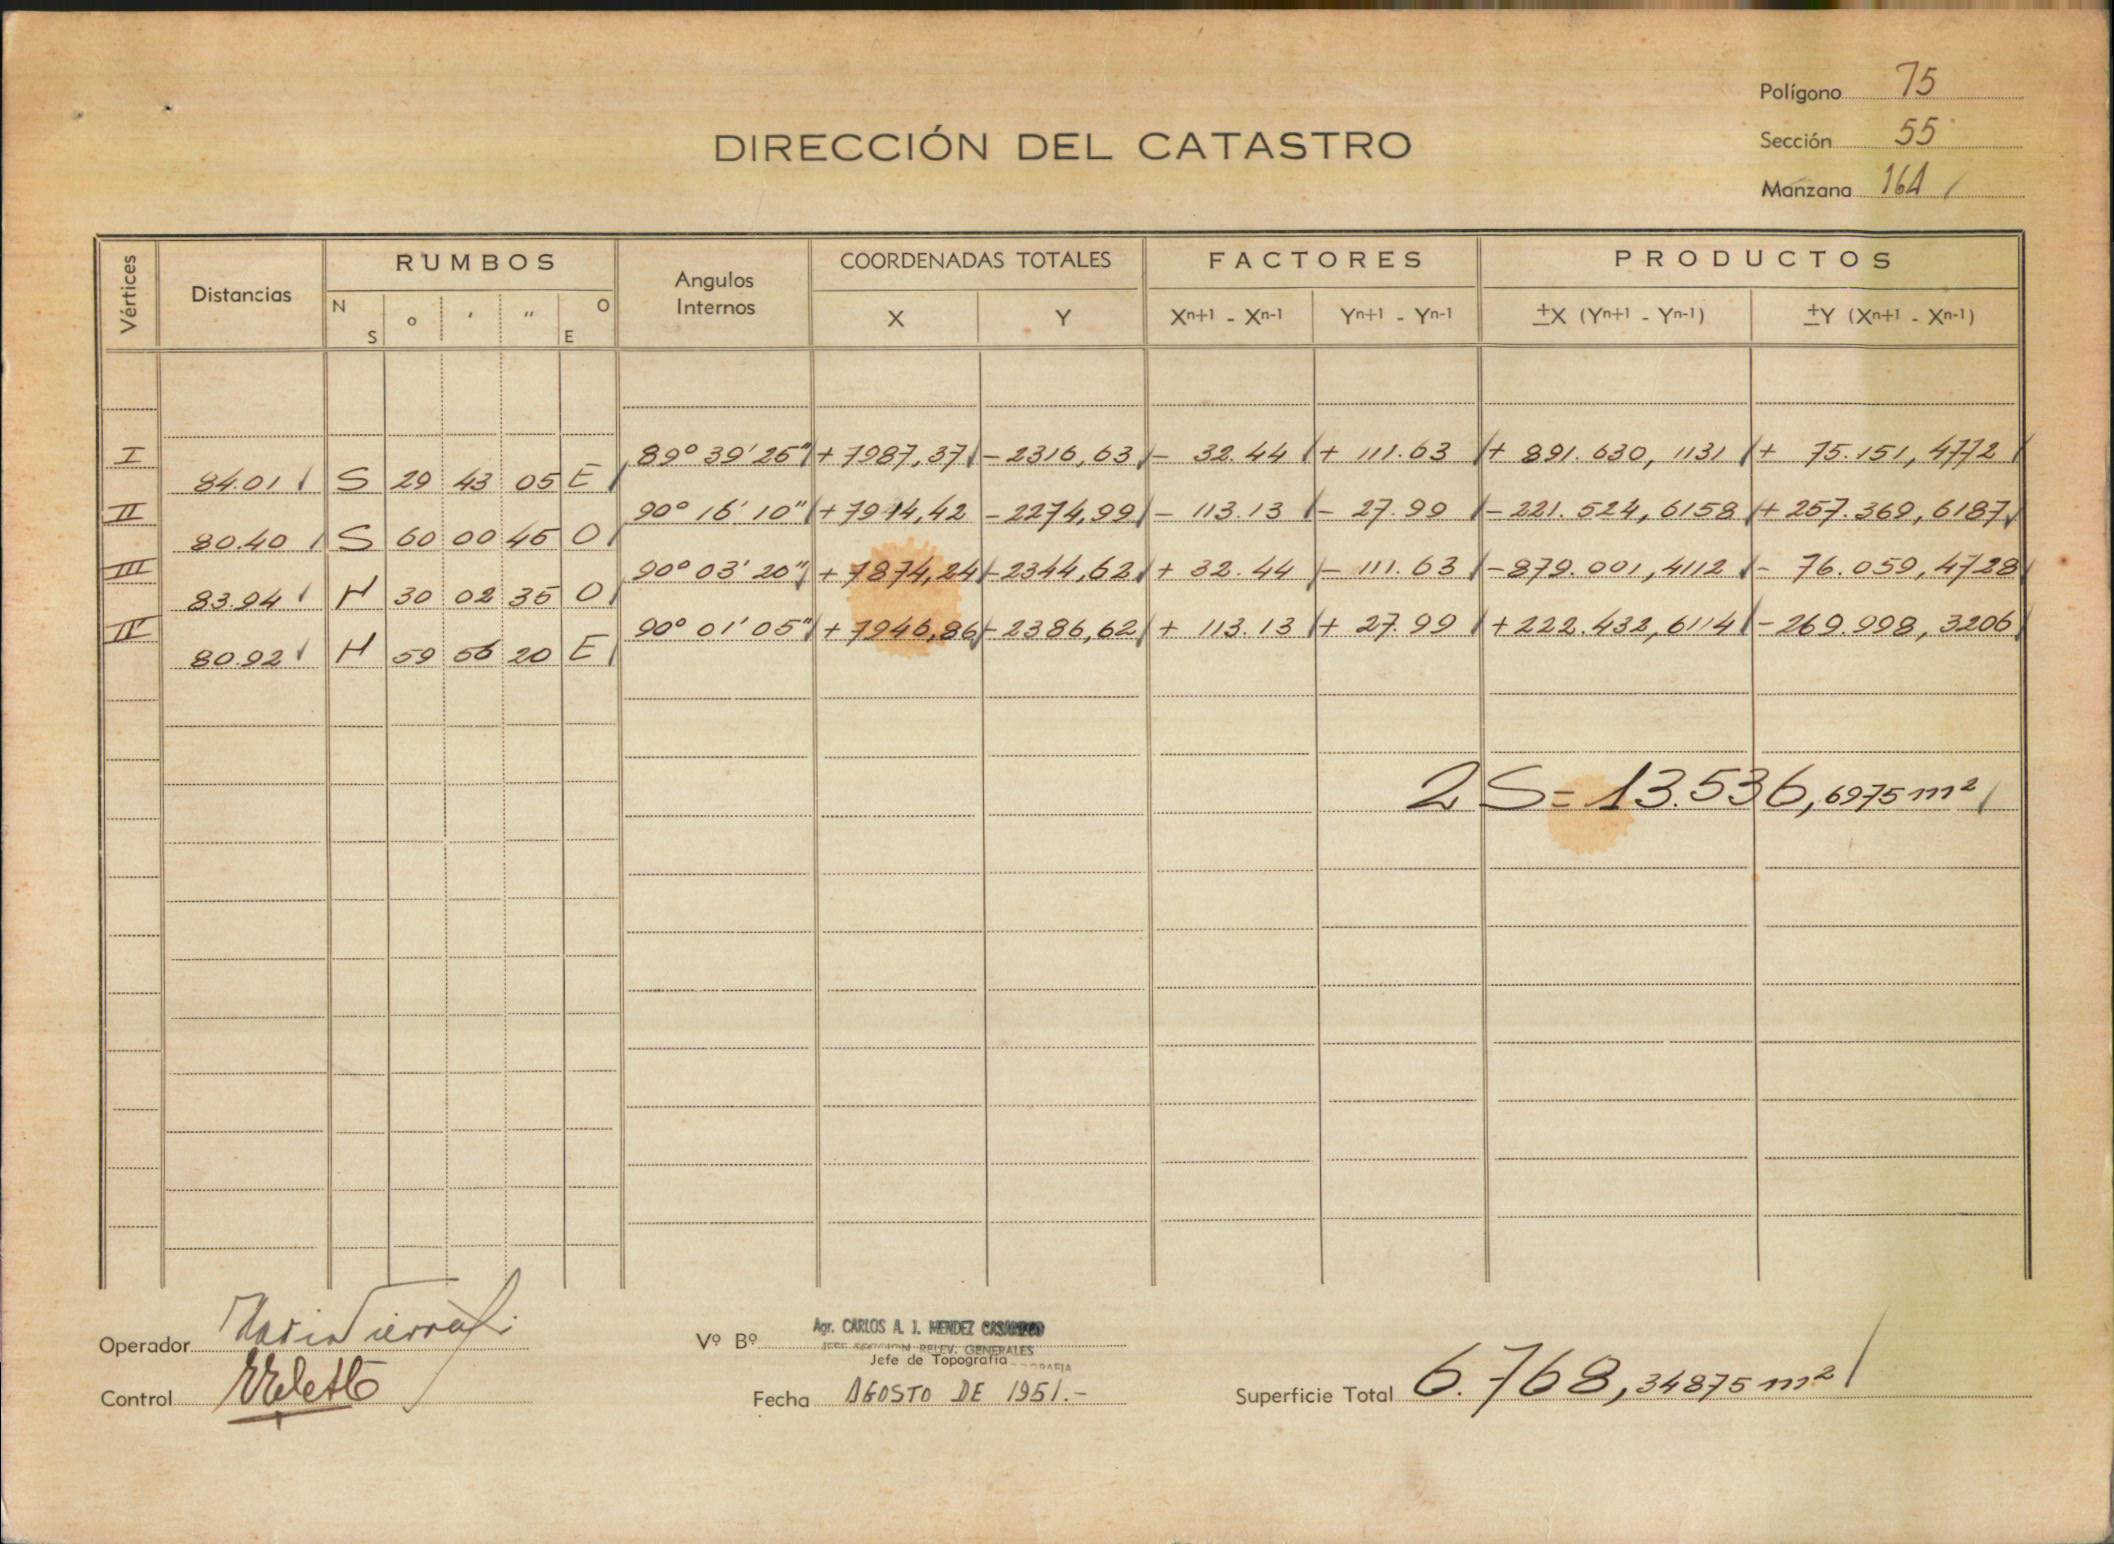 Polígono 75
Sección 55
Manzana 164
DIRECCIÓN DEL CATASTRO
Vértices Distancias RUMBOS Angulos Internos COORDENADAS TOTALES FACTORES PRODUCTOS
N S o ' " O E X Y Xn+1 - Xn-1 Yn+1 - Yn-1 ±X (Yn+1 - Yn-1) ±Y (Xn+1 - Xn-1)
I 89° 39' 25" + 7987,37 - 2316,63 - 32.44 + 111.63 + 891.630,1131 + 75.151,4772
84.01 S 29 43 05 E
II 90° 16' 10" + 7914,42 - 2274,99 - 113.13 - 27.99 - 221.524,6158 + 257.369,6187
80.40 S 60 00 45 O
III 90° 03' 20" + 7874,24 - 2344,62 + 32.44 - 111.63 - 879.001,4112 - 76.059,4728
83.94 N 30 02 35 O
IV 90° 01' 05" + 7946,86 - 2386,62 + 113.13 + 27.99 + 222.432,6114 - 269.998,3206
80.92 N 59 56 20 E
2 S = 13.536,6975 m²
Operador
Vº Bº Agr. CARLOS A. J. MENDEZ
RELEV. GENERALES
Jefe de Topografía
Control
Fecha AGOSTO DE 1951.-
Superficie Total 6.768,34875 m²